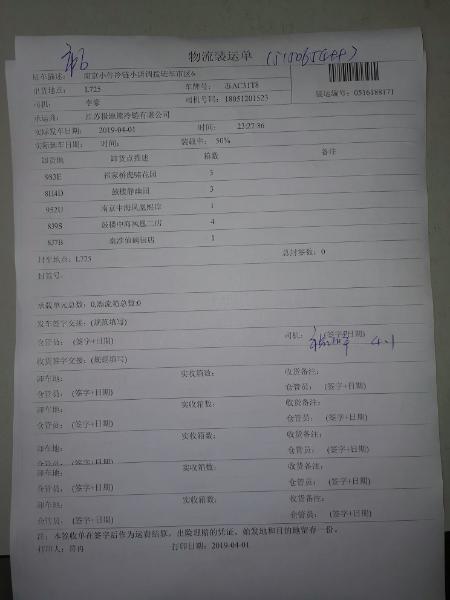 物流装运单
(15150654499)
征车描述: 南京小件冷链小店调拨运车市区6
出货地点: L725 车牌号: 苏AC31T8
司机: 李豪 司机号码: 18051201523 装运编号: 0516188171
承运商: 江苏极速鲜冷链有限公司
实际发车日期: 2019-04-01 时间: 23:27:86
实际到车日期: 时间: 装载率: 50%
卸货地 卸货点描述 箱数 备注
983E 3
8H4D 鼓楼静幽园 3
952U 南京中海凤凰熙岸 1
839S 鼓楼中海凤凰二店 4
837B 1
封车地点: L725 总封签数: 0
封签号:
承载单元总数: 0,物流箱总数:0
发车签字交接: (规范填写)
仓管员: (签字+日期) 司机: (签字+日期)
4.1
收货签字交接: (规范填写)
卸车地: 实收箱数: 收货备注:
仓管员: (签字+日期) 仓管员: (签字+日期)
卸车地: 实收箱数: 收货备注:
仓管员: (签字+日期) 仓管员: (签字+日期)
卸车地: 实收箱数: 收货备注:
仓管员: (签字+日期) 仓管员: (签字+日期)
卸车地: 实收箱数: 收货备注:
仓管员: (签字+日期) 仓管员: (签字+日期)
卸车地: 实收箱数: 收货备注:
仓管员: (签字+日期) 仓管员: (签字+日期)
注: 本签收单在签字后作为运费结算、出险理赔的凭证, 始发地和目的地留存一份。
打印人: 打印日期: 2019-04-01